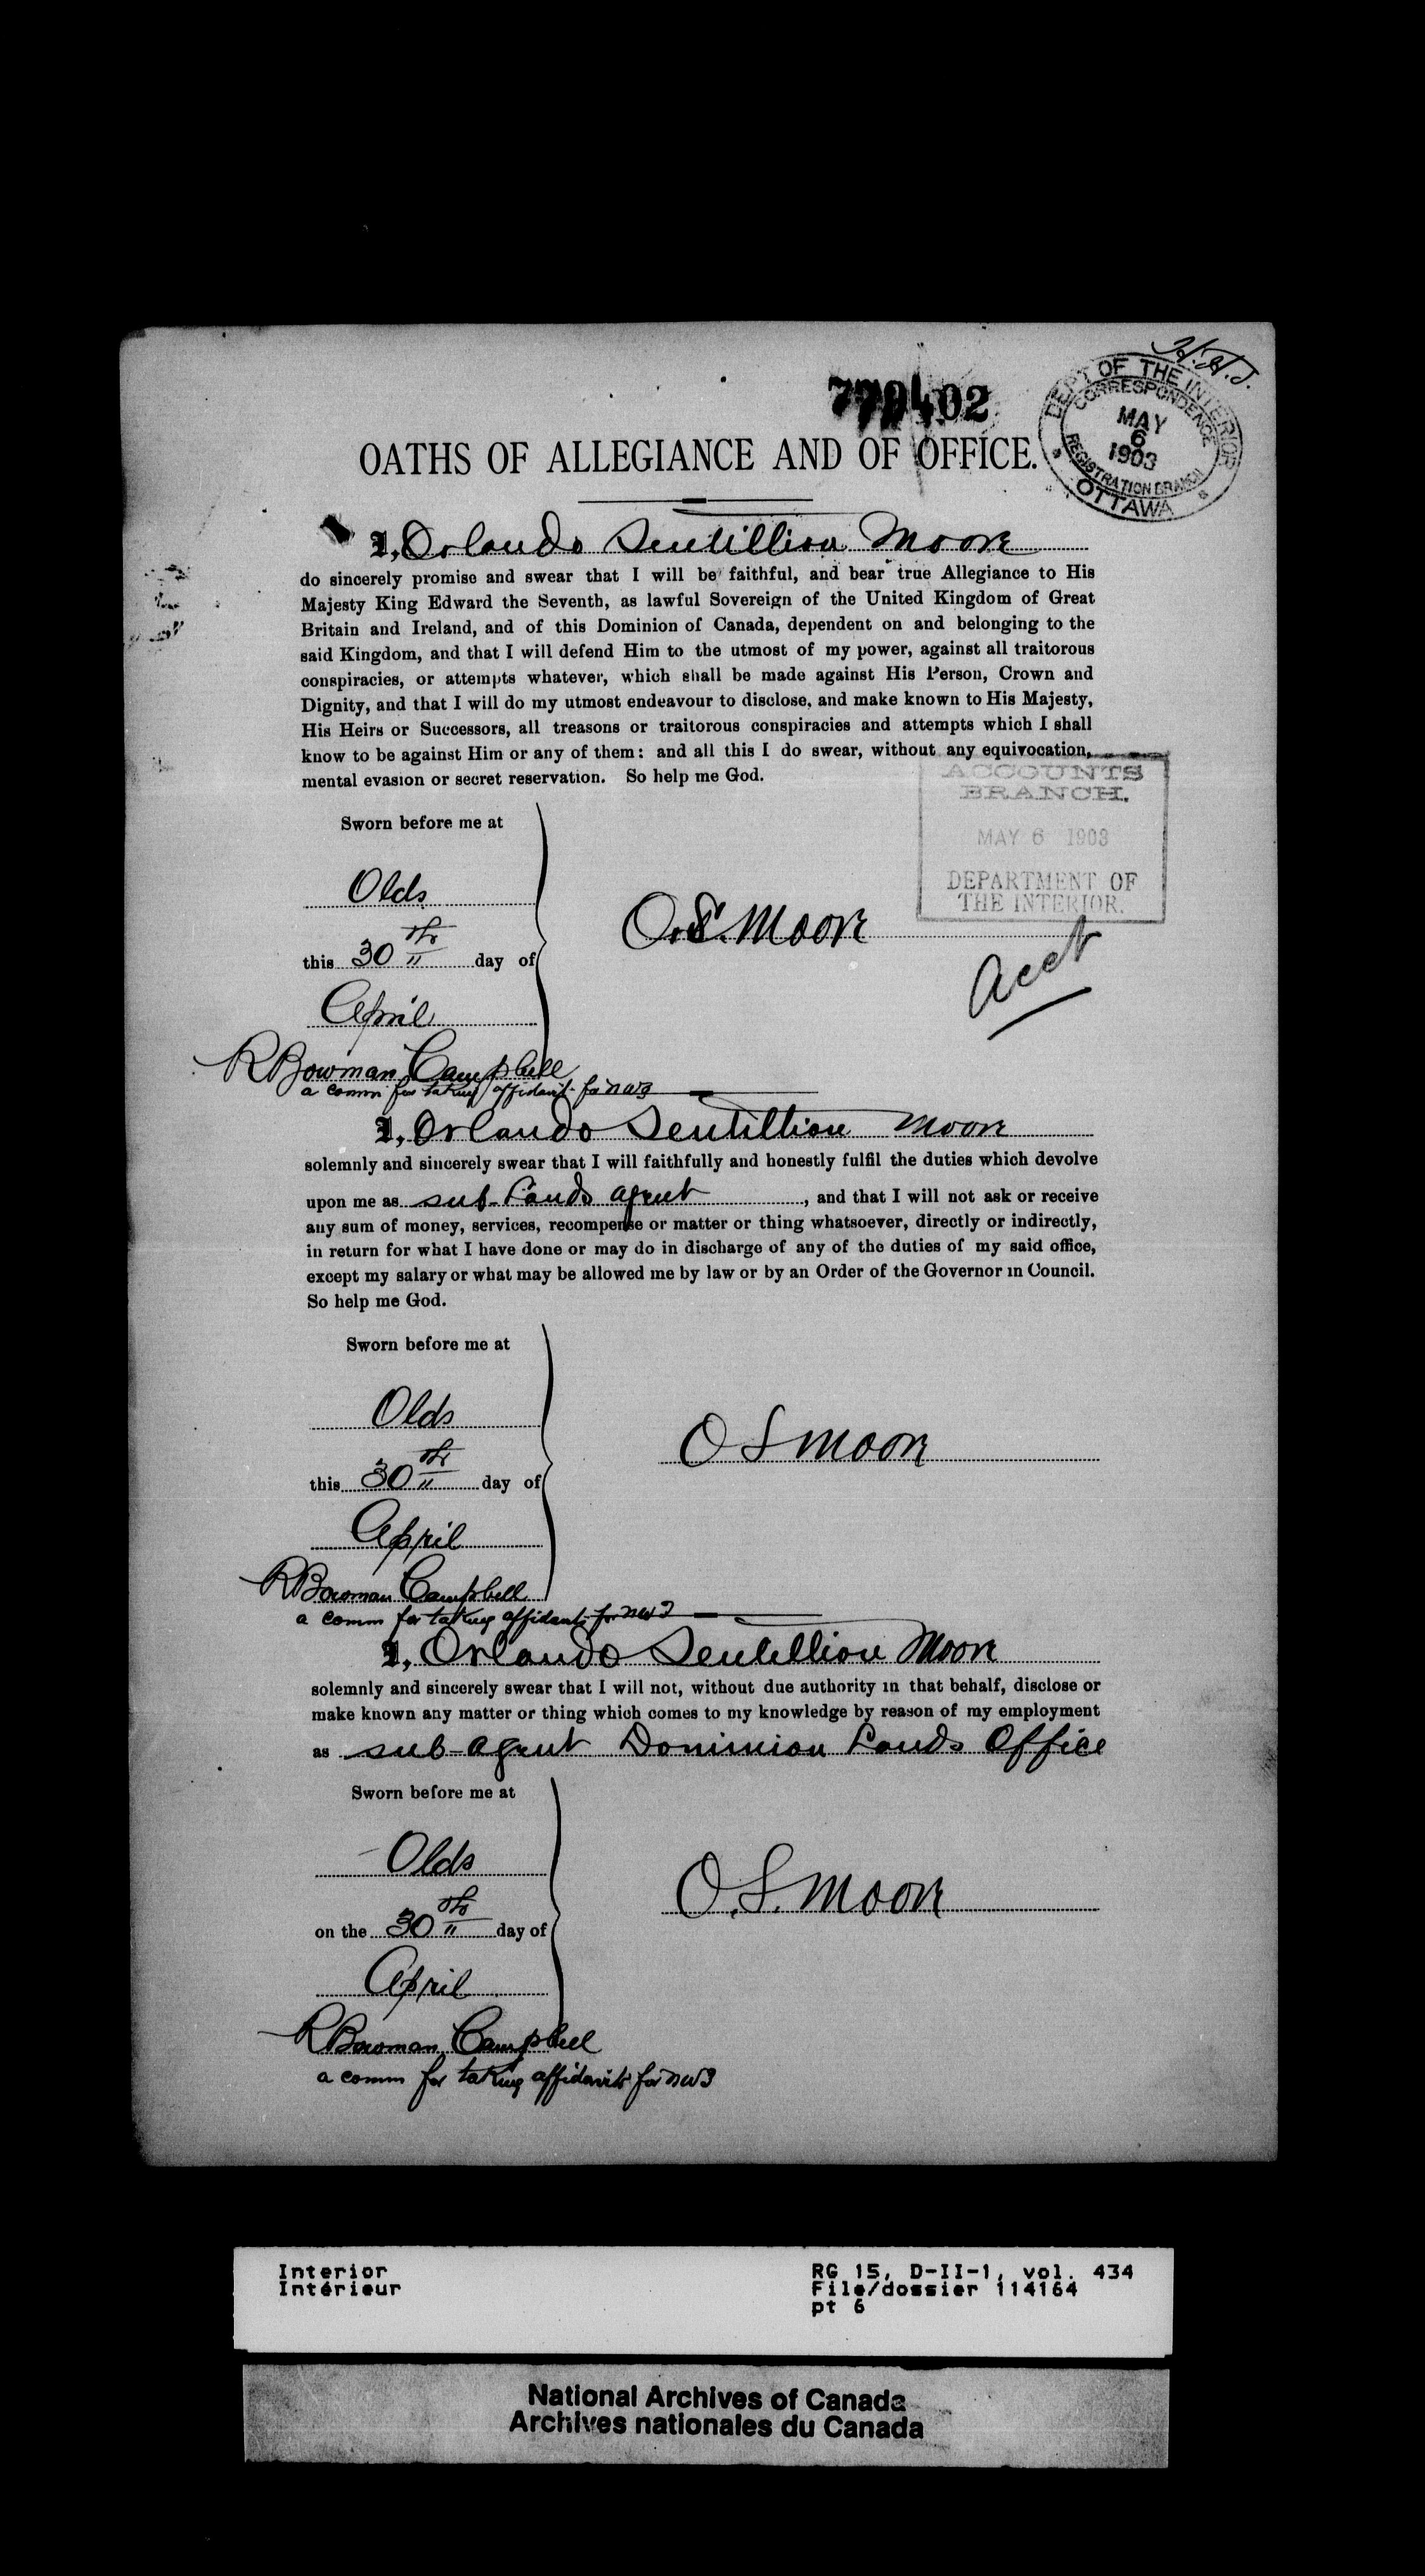 H.H.J.
DEPT OF THE INTERIOR
CORRESPONDENCE
MAY
6
1903
REGISTRATION BRANCH
OTTAWA
OATHS OF ALLEGIANCE AND OF OFFICE.
I, Orlando Sentillion Moore
do sincerely promise and swear that I will be faithful, and bear true Allegiance to His
Majesty King Edward the Seventh, as lawful Sovereign of the United Kingdom of Great
Britain and Ireland, and of this Dominion of Canada, dependent on and belonging to the
said Kingdom, and that I will defend Him to the utmost of my power, against all traitorous
conspiracies, or attempts whatever, which shall be made against His Person, Crown and
Dignity, and that I will do my utmost endeavour to disclose, and make known to His Majesty,
His Heirs or Successors, all treasons or traitorous conspiracies and attempts which I shall
know to be against Him or any of them: and all this I do swear, without any equivocation,
mental evasion or secret reservation. So help me God.
ACCOUNTS
BRANCH.
MAY 6 1903
DEPARTMENT OF
THE INTERIOR.
Sworn before me at
Olds
O.S. Moore
this 30th day of
acct
April
R Bowman Campbell
a comm for taking affidavits for NWT
I, Orlando Sentillion Moore
solemnly and sincerely swear that I will faithfully and honestly fulfil the duties which devolve
upon me as sub-Lands agent, and that I will not ask or receive
any sum of money, services, recompense or matter or thing whatsoever, directly or indirectly,
in return for what I have done or may do in discharge of any of the duties of my said office,
except my salary or what may be allowed me by law or by an Order of the Governor in Council.
So help me God.
Sworn before me at
Olds
O S Moore
this 30th day of
April
R Bowman Campbell
a comm for taking affidavits for NWT
I, Orlando Sentillion Moore
solemnly and sincerely swear that I will not, without due authority in that behalf, disclose or
make known any matter or thing which comes to my knowledge by reason of my employment
as sub-agent Dominion Lands Office
Sworn before me at
Olds
O.S. Moore
on the 30th day of
April
R Bowman Campbell
a comm for taking affidavits for NWT
Interior
Intérieur
RG 15, D-II-1, vol. 434
File/dossier 114164
pt 6
National Archives of Canada
Archives nationales du Canada